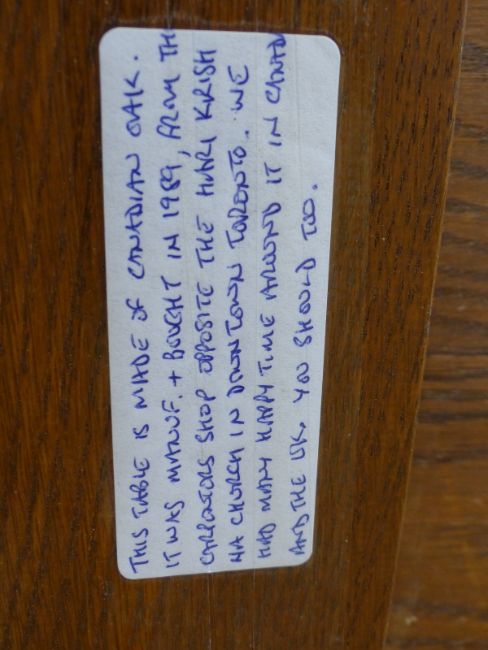 THIS TABLE IS MADE OF CANADIAN OAK.
IT WAS MANUF. + BOUGHT IN 1989, FROM TH
CARPENTORS SHOP OPPOSITE THE HARI KRISH
NA CHURCH IN DOWNTOWN TORONTO. WE
HAD MANY HAPPY TIME AROUND IT IN CANAD
AND THE UK. YOU SHOULD TOO.